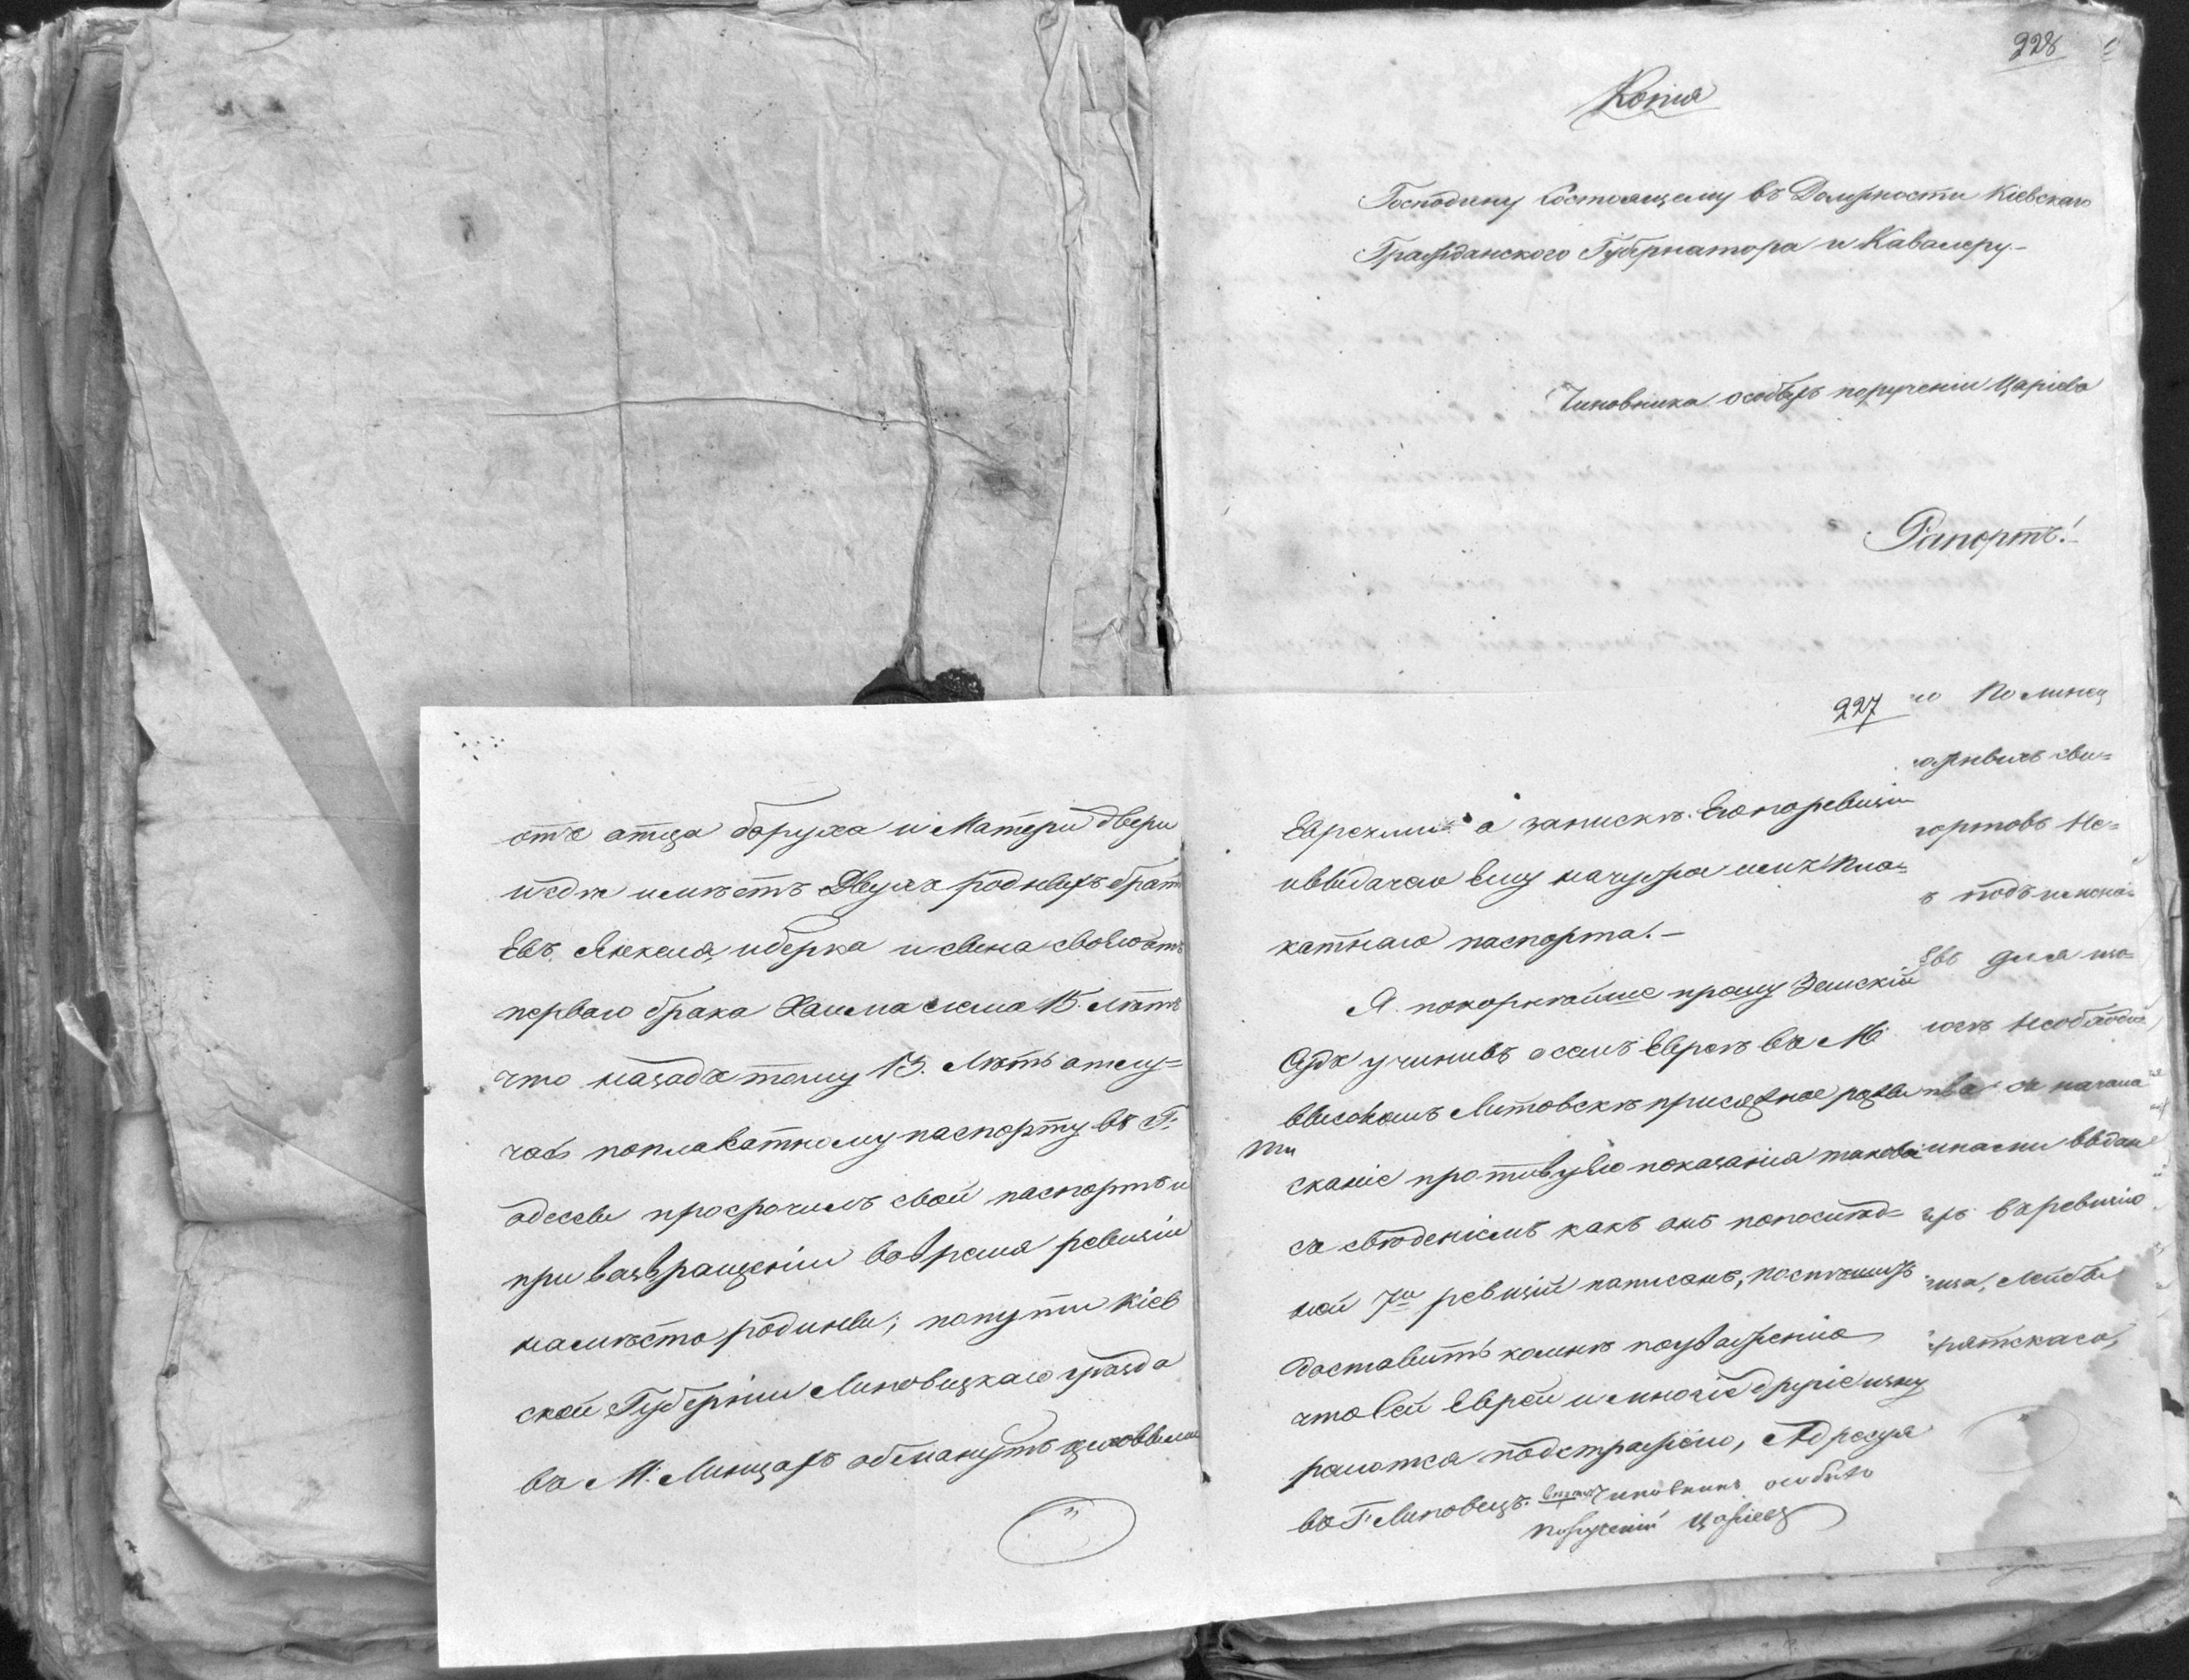 228
Копія
Господину Состоящему въ Должности Кіевскаго
Гражданского Губернатора и Кавалеру
Чиновника особыхъ порученіи Царіева
Рапортъ!
227
отъ отца боруха и Матери двери
имѣетъ Двухъ родныхъ брат
Евъ. Янкеля, иберка и сына своего отъ
перваго брака Хаима 15. лѣтъ
что назадъ тому 13. Лѣтъ отлу=
часъ поплакатному паспорту въ Г:
одессы просрочилъ свой паспортъ и
при Возвращеніи вовремя ревизіи
намѣсто родины; попути Кіев
ской Губерніи Липовецкаго уѣзда
въ М: Линцахъ обманутъ
Евреями о запискѣ Егопоревизіи
ивыдачаю Ему началу пла=
катнаго паспорта.
Я покорнѣйше прошу Земскій
Судъ учинивъ осемъ Евреѣ въ М:
высокомъ Литовскѣ присяжное розы
сканіе противу Его показанія таковое
съ свѣденіемъ какъ онъ попослѣд=
ной 7й ревизіи написанъ, поспѣшить
доставить комнѣ поуваженію
что Сей Еврей и многіе другіе изну
ряются подстражею, Адресуя
въ Г. Липовецъ. Чиновникъ особыхъ
порученій Царіевъ
По линец
ортовъ Не=
Евъ для
несоблюде
съ начала
инами выдан
въревизію
Лейбы